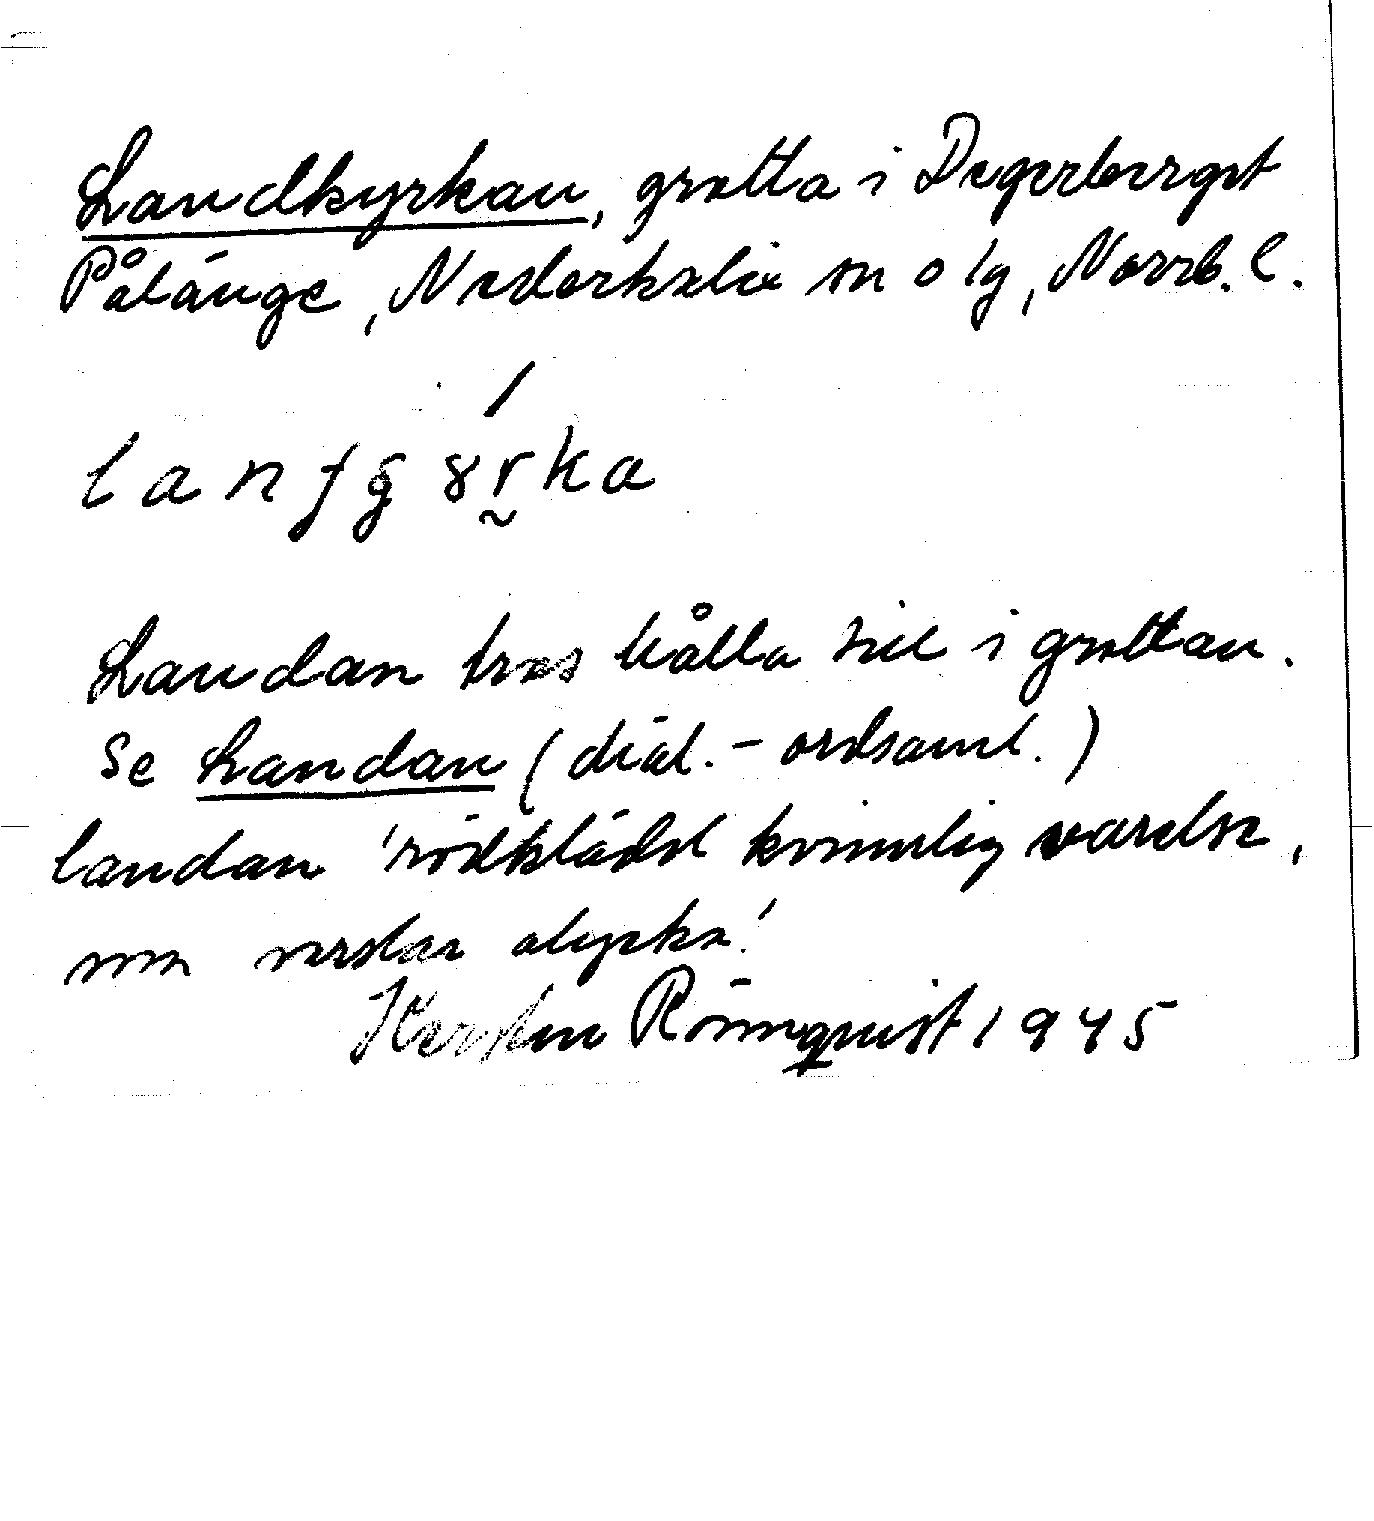 Landkyrkan, grotta i Degerberget
Pålänge, Nederkalix sn o lg, Norrb. l.
Landan tros hålla till i grottan.
Se Landan (dial. - ordsaml.)
landan 'rödklädd kvinnlig varelse,
som vardar olycka'
Kerstin Rönnqvist 1945